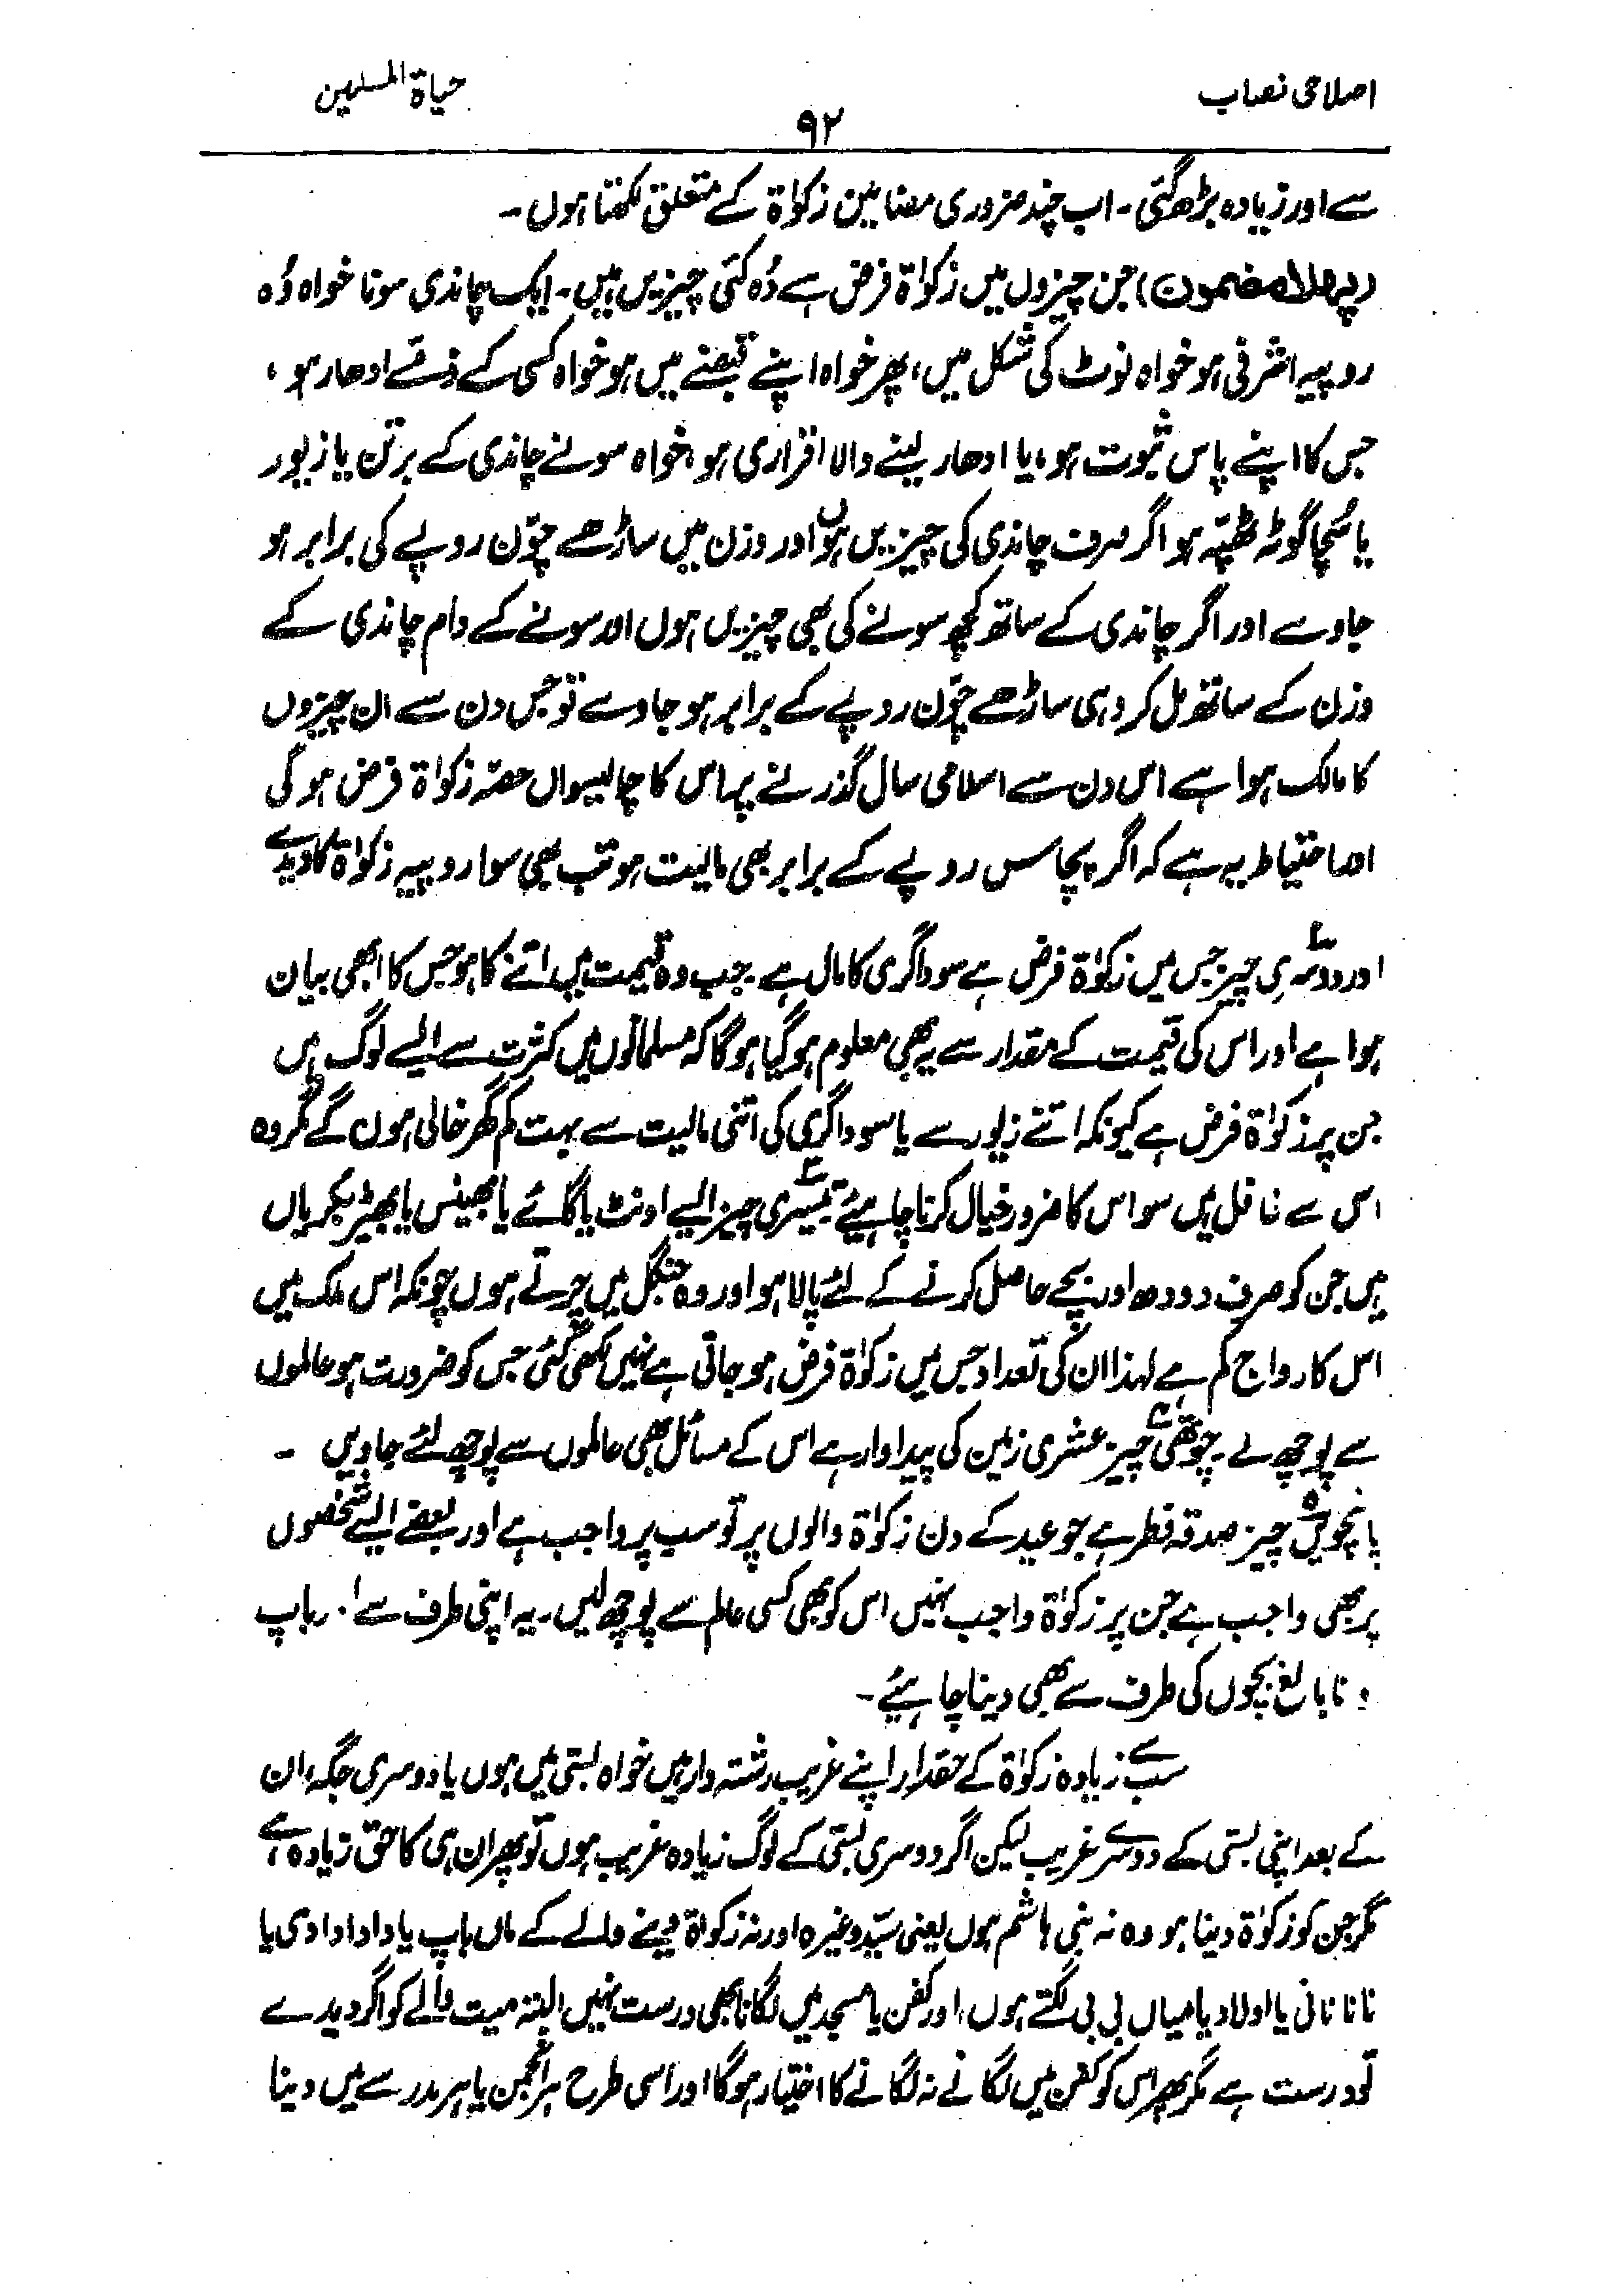 اصلاحی نصاب
۹۲
حیاۃ المسلمین
سے اور زیادہ بڑھ گئی۔ اب چند ضروری مضامین زکوٰۃ کے متعلق لکھتا ہوں۔
(پہلا مضمون) جن چیزوں میں زکوٰۃ فرض ہے وُہ کئی چیزیں ہیں۔ ایک چاندی سونا خواہ وُہ
روپیہ اشرفی ہو خواہ نوٹ کی شکل میں، پھر خواہ اپنے قبضے میں ہو خواہ کسی کے ذمّے ادھار ہو،
جس کا اپنے پاس ثبوت ہو، یا ادھار لینے والا اقراری ہو، خواہ سونے چاندی کے برتن یا زیور
یا سُچا گوٹہ ٹھپّہ ہو اگر صرف چاندی کی چیزیں ہوں اور وزن میں ساڑھے چوّن روپے کی برابر ہو
جاوے اور اگر چاندی کے ساتھ کچھ سونے کی بھی چیزیں ہوں اور سونے کے دام چاندی کے
وزن کے ساتھ مل کر وہی ساڑھے چوّن روپے کے برابر ہو جاوے تو جس دن سے ان چیزوں
کا مالک ہوا ہے اس دن سے اسلامی سال گذرنے پر اس کا چالیسواں حصہ زکوٰۃ فرض ہو گی
اور احتیاط یہ ہے کہ اگر پچاس روپے کے برابر بھی مالیت ہو تب بھی سوا روپیہ زکوٰۃ کا دیدے
اور دوسری چیز جس میں زکوٰۃ فرض ہے سوداگری کا مال ہے۔ جب وہ قیمت میں اتنے کا ہو جس کا ابھی بیان
ہوا ہے اور اس کی قیمت کے مقدار سے یہ بھی معلوم ہو گیا ہو گا کہ مسلمانوں میں کثرت سے ایسے لوگ ہیں
جن پر زکوٰۃ فرض ہے کیونکہ اتنے زیور سے یا سوداگری کی اتنی مالیت سے بہت کم گھر خالی ہوں گے مگر وہ
اس سے غافل ہیں سو اس کا ضرور خیال کرنا چاہیئے تیسری چیز ایسے اونٹ یا گائے یا بھینس یا بھیڑ بکریاں
ہیں جن کو صرف دودھ اور بچے حاصل کرنے کے لئے پالا ہو اور وہ جنگل میں چرتے ہوں چونکہ اس ملک میں
اس کا رواج کم ہے لہذا ان کی تعداد جس میں زکوٰۃ فرض ہو جاتی ہے نہیں لکھی گئی جس کو ضرورت ہو عالموں
سے پوچھ لے۔ چوتھی چیز عشری زمین کی پیداوار ہے اس کے مسائل بھی عالموں سے پوچھ لئے جاویں ۔
پانچویں چیز صدقہ فطر ہے جو عید کے دن زکوٰۃ والوں پر تو سب پر واجب ہے اور بعضے ایسے شخصوں
پر بھی واجب ہے جن پر زکوٰۃ واجب نہیں اس کو بھی کسی عالم سے پوچھ لیں۔ یہ اپنی طرف سے اور باپ
نابالغ بچوں کی طرف سے بھی دینا چاہیئے۔
سب سے زیادہ زکوٰۃ کے حقدار اپنے غریب رشتہ دار ہیں خواہ بستی میں ہوں یا دوسری جگہ، ان
کے بعد اپنی بستی کے دوسرے غریب لیکن اگر دوسری بستی کے لوگ زیادہ غریب ہوں تو پھر ان ہی کا حق زیادہ ہے
مگر جن کو زکوٰۃ دینا ہو وہ نہ بنی ہاشم ہوں یعنی سیّد وغیرہ اور نہ زکوٰۃ دینے والے کے ماں باپ یا دادا دادی یا
نانا نانی یا اولاد یا میاں بی بی لگتے ہوں، اور کفن یا مسجد میں لگانا بھی درست نہیں البتہ میت والے کو اگر دیدے
تو درست ہے مگر پھر اس کو کفن میں لگانے نہ لگانے کا اختیار ہو گا اور اسی طرح ہر انجمن یا ہر مدرسے میں دینا